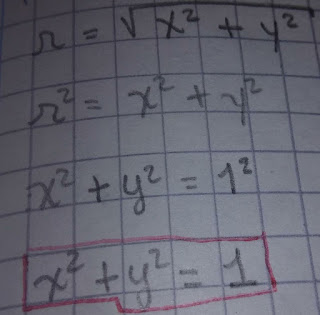 r = √x² + y²
r² = x² + y²
x² + y² = 1²
x² + y² = 1